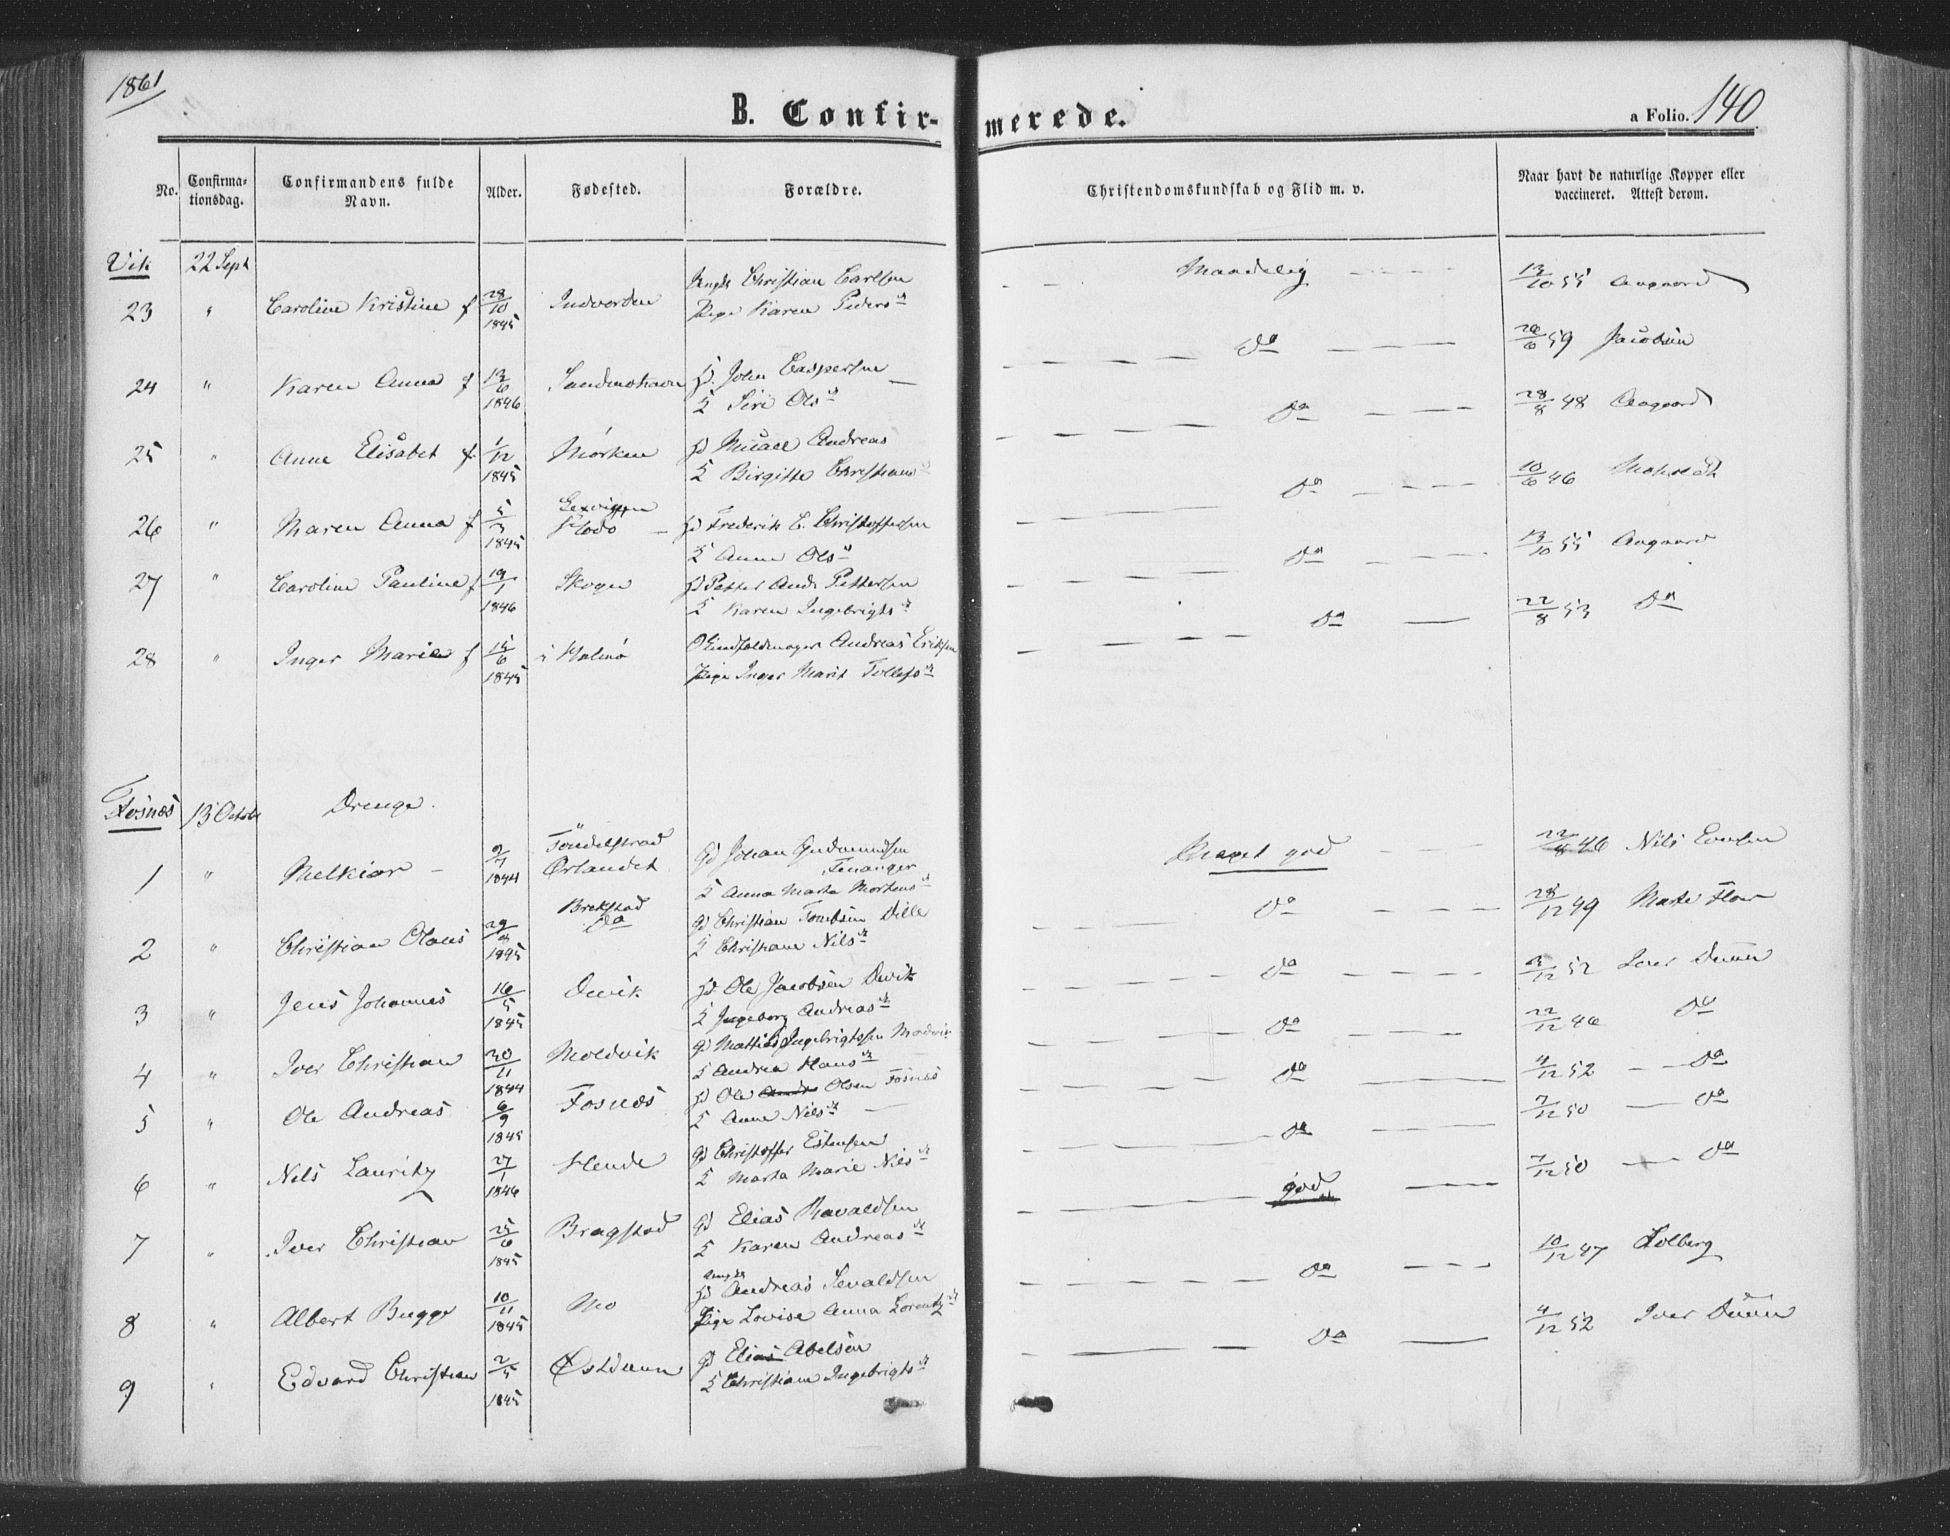 1861
B. Confir-
merede.
a Folio. 140
No.
Confirma-
tionsdag.
Confirmandens fulde
Navn.
Alder.
Fødested.
Forældre.
Christendomskundskab og Flid m. v.
Naar havt de naturlige Kopper eller
vaccineret. Attest derom.
Vik 22 Sept
23 " Caroline Kristine f 28/10 1845 Indvorden
Christian Carlsen
Pige Karen Peders
Maadelig
13/10 55 Aagaard
24 " Karen Anna f 13/6 1846
John Caspersen
Siri Ols
do
/6 59 Jacobsen
25 " Anne Elisabet f 1/12 1845 Mørken
Andreas
Birgitte Christians
do
28/8 48 Aagaard
26 " Maren Anna f 5/3 1845
Frederik C. Christoffersen
Anne Ols
do
10/6 46
27 " Caroline Pauline f 19/1 1846 Skogn
Petter And Pettersen
Karen Ingebrigts
do
13/10 55 Aagaard
28 " Inger Marie f 15/6 1845
Andreas Eriksen
Pige Inger Marit Tollefs
do
22/8 53 do
Fosnæs 13 October Drenge.
1 " Melkior 9/7 1844
Ørlandet
Johan Gudmundsen
Anna Marta Mortens
Meget god
22/8 46 Nils Evensen
2 " Christian Olaus 29/ 1845
Brekstad
do
Christian Tomesen Dille
Christiane Nils
do
28/12 49
3 " Jens Johannes 16/5 1845 Devik
Ole Jacobsen Devik
Ingeborg Andreas
do
/12 52 Iver Duun
4 " Iver Christian 30/11 1844 Moldvik
Mattias Ingebrigtsen
Andrea Hans
do
22/12 46 do
5 " Ole Andreas 6/9 1845 Fosnæs
Ole Olsen Fosnæs
Anne Nils
do
4/12 52 do
6 " Nils Lauritz 27/1 1846
Christoffer Estensen
Marta Marie Nils
do
7/12 50 do
7 " Iver Christian 25/6 1845 Bragstad
Elias Havaldsen
Karen Andreas
god
7/12 50 do
8 " Albert Bugge 10/11 1845 Mo
Andreas Sevaldsen
Pige Lovise Anna Lorentz
do
10/12 47 Solberg
9 " Edvard Christian 2/5 1845 Østduun
Elias Abelsen
Christiane Ingebrigts
do
4/12 52 Iver Duun